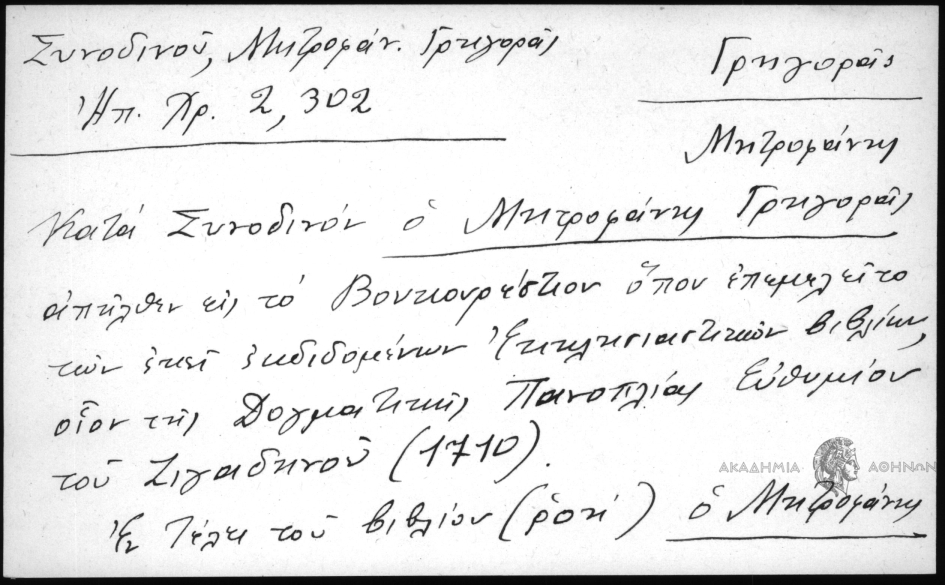 Συνοδινοῦ, Μητροφάν. Γρηγορᾶς
Ἠπ. Χρ. 2, 302
Γρηγορᾶς
Μητροφάνης
Κατά Συνοδινόν ὁ Μητροφάνης Γρηγορᾶς
ἀπῆλθεν εἰς τό Βουκουρέστιον ὅπου ἐπεμελεῖτο
τῶν ἐκεῖ ἐκδιδομένων Ἐκκλησιαστικῶν βιβλίων,
οἷον τῆς Δογματικῆς Πανοπλίας Εὐθυμίου
τοῦ Ζιγαδηνοῦ (1710).
Ἐν τέλει τοῦ βιβλίου (ροή) ὁ Μητροφάνης
ΑΚΑΔΗΜΙΑ ΑΘΗΝΩΝ